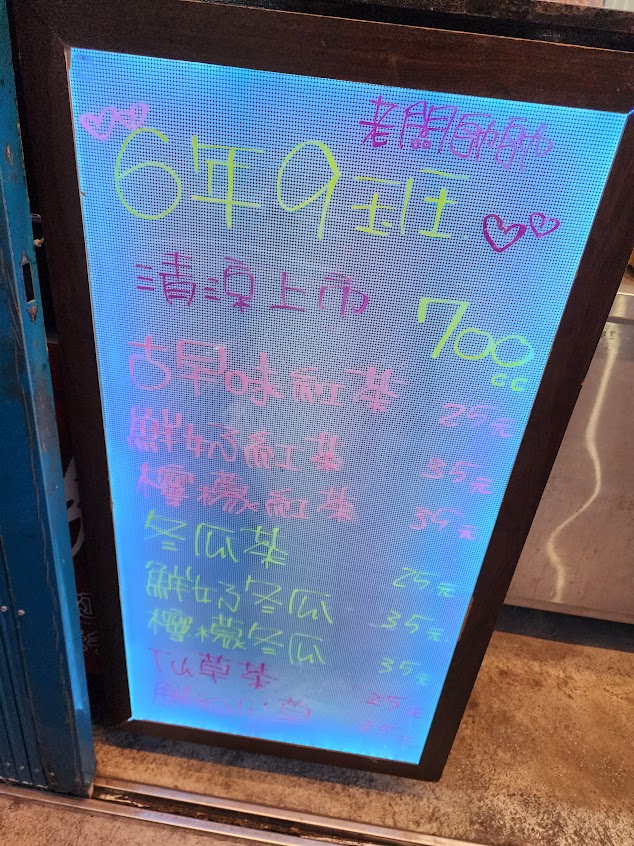 老闆帥帥
6年9班
清涼上市
700cc
古早味紅茶 25元
鮮奶紅茶 35元
檸檬紅茶 35元
冬瓜茶 25元
鮮奶冬瓜 35元
檸檬冬瓜 35元
仙草茶 25元
鮮奶仙草 35元